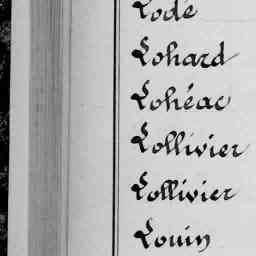 Lodé
Lohard
Lohéac
Lollivier
Lollivier
Louin